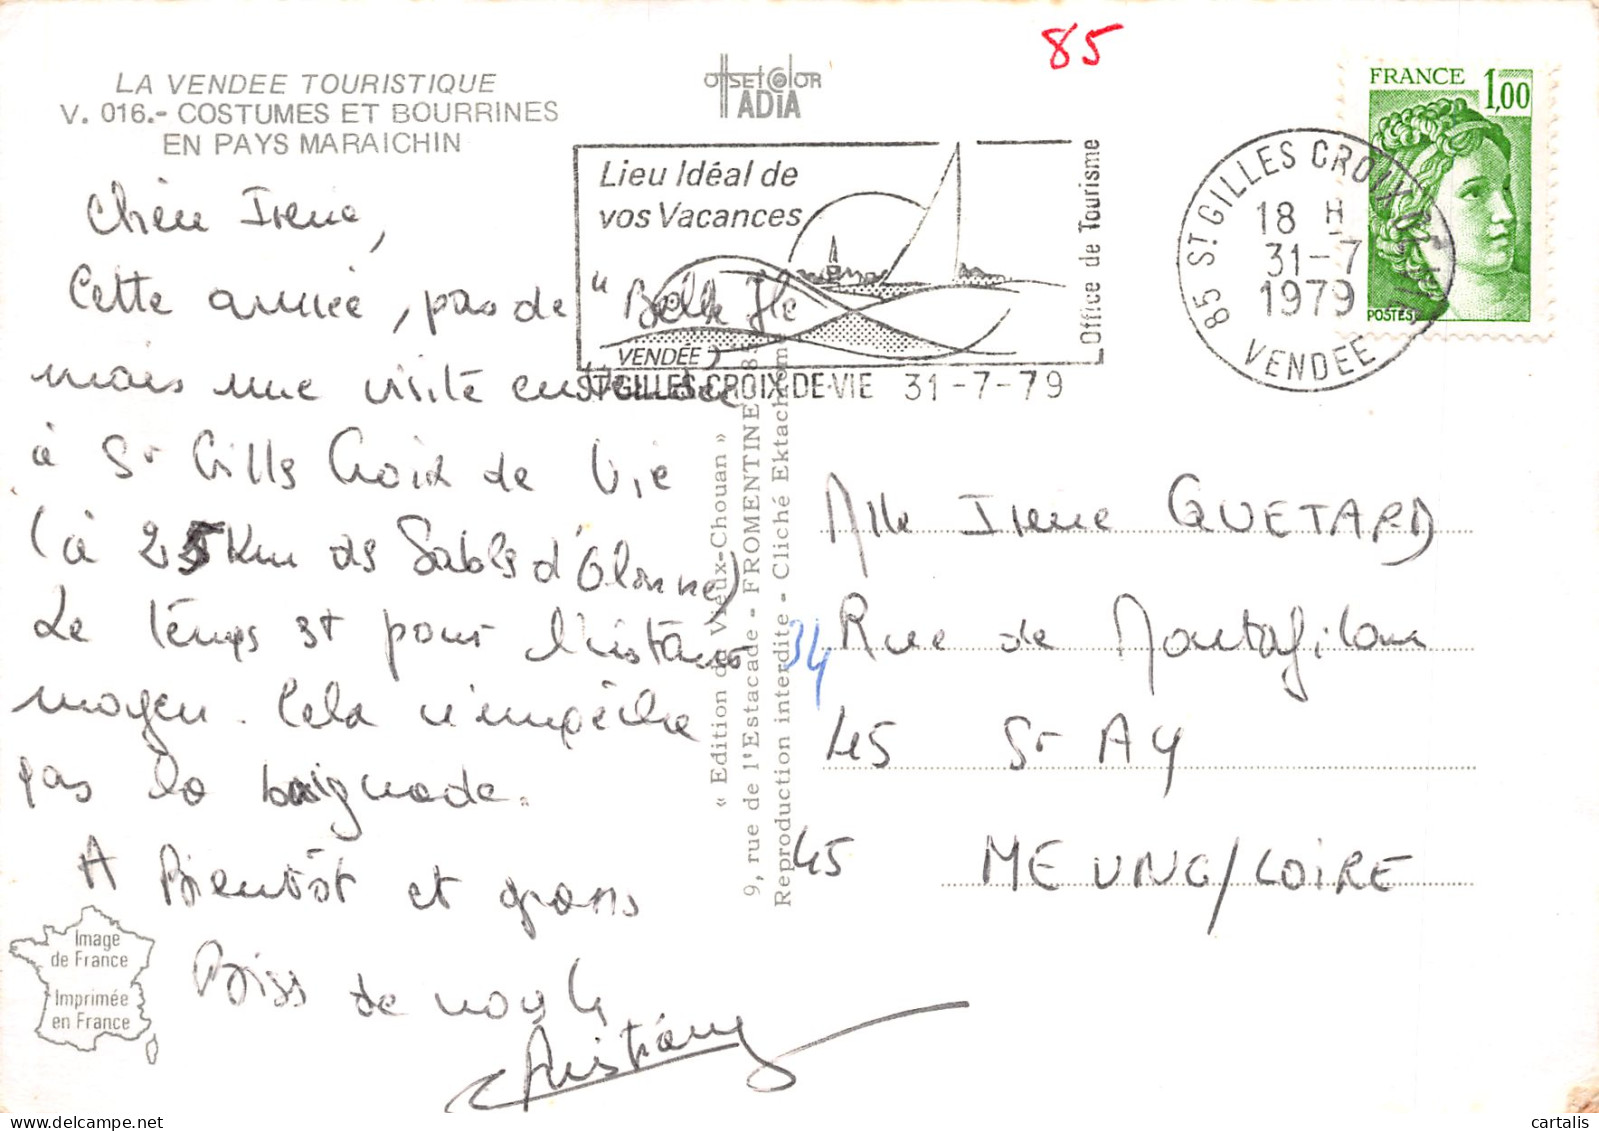 85
LA VENDEE TOURISTIQUE
V. 016.- COSTUMES ET BOURRINES
EN PAYS MARAICHIN
OffSEtColOR
IADIA
FRANCE 1,00
POSTES
Lieu Idéal de
vos Vacances
VENDÉE
Office de Tourisme
ST GILLES-CROIX-DE-VIE 31-7-79
85 ST GILLES CROIX DE VIE
18 H
31-7
1979
VENDEE
Chère Irène,
Cette année, pas de "Belle Ile
mais une visite
à St Gilles Croix de Vie
(à 25 Km des Sables d'Olonne)
Le temps est pour l'instant
moyen. Cela n'empêche
pas la baignade.
A Bientôt et gros
Biss de nous 4
Christiane
« Edition du Vieux-Chouan »
9, rue de l'Estacade - FROMENTINE 85
Reproduction interdite - Cliché Ektachrome
Mlle Irène QUETARD
34 Rue de Montafilan
45 St AY
45 MEUNG/LOIRE
Image
de France
Imprimée
en France
cartalis